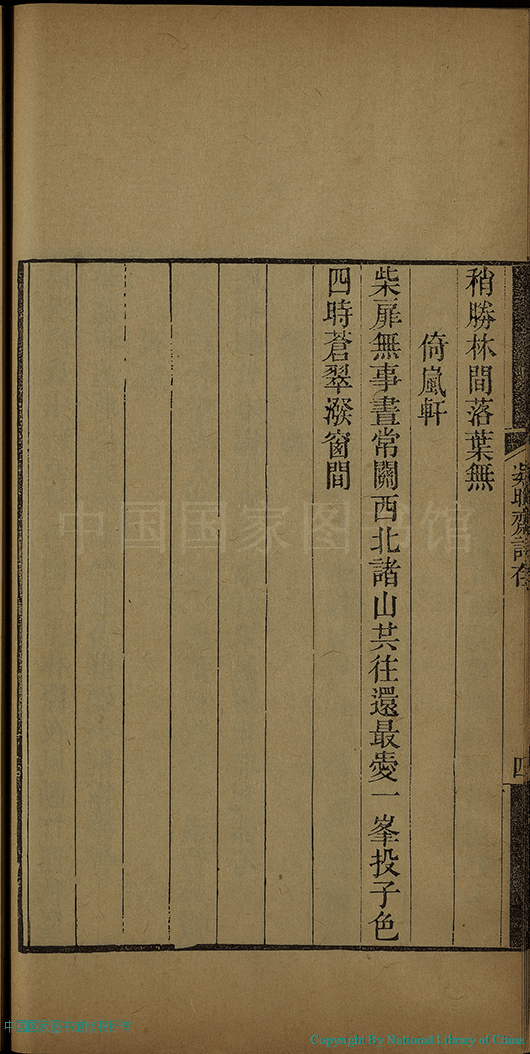 稍勝林間落葉無
倚嵐軒
柴扉無事晝常關西北諸山共往還最愛一峯投子色
四時蒼翠潑窗間
齋詩存
四
中国国家图书馆
Copyright By National Library of China